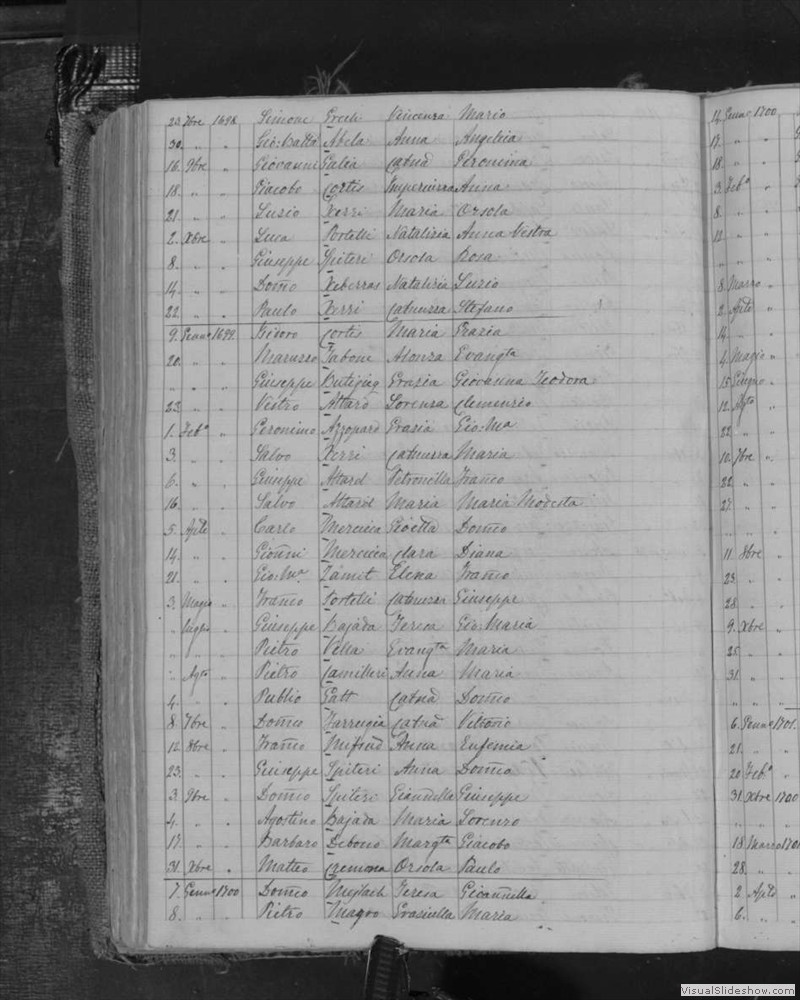 23. 7bre 1698 Simone Grech Vincenza Mario
30. " " Gio:Batta Abela Anna Angelica
16. 9bre " Giovanni Galea Catnã Peronina
18. " " Giacobo Cortis Imperiuzza Anna
21. " " Luzio Xerri Maria Orsola
2. Xbre " Luca Portelli Natalizia Anna Vestra
8. " " Giuseppe Spiteri Orsola Rosa
14. " " Domco Xeberras Natalizia Luzio
22. " " Paulo Xerri Catnuzza Stefano
9. Gennaro 1699. Isidoro Cortis Maria Grazia
20. " " Maruzzo Tabone Alonza Evangta
" " " Giuseppe Butigieg Grazia Giovanna Teodora
23 " " Vestro Attard Lorenza Clemenzio
1. Feb° " Geronimo Azzopard Grazia Gio:Ma
3. " " Salvo Xerri Catnuzza Maria
6. " " Giuseppe Attard Petronilla Franco
16. " " Salvo Attard Maria Maria Modesta
5. Aple " Carlo Mercieca Domco
14. " " Gionni Mercieca Clara Diana
21. " " Gio:Ma Zamit Elena Franco
3. Magio " Franco Portelli Catnuzza Giuseppe
" Luglio " Giuseppe Bajada Teresa Gio:Maria
" " " Pietro Vella Evangta Maria
" Agto " Pietro Camilleri Anna Maria
4. " " Publio Gatt Catnã Domco
8. 7bre " Domco Farrugia Catnã Vittorio
12. 8bre " Franco Mifsud Anna Eufemia
23. " " Giuseppe Spiteri Anna Domco
3. 9bre " Domco Spiteri Giannella Giuseppe
4. " " Agostino Bajada Maria Lorenzo
17. " " Barbaro Debono Margta Giacobo
31. Xbre " Matteo Cremona Orsola Paulo
7. Gennaro 1700 Domco Mejlach Teresa Gioannella
8. " " Pietro Magro Graziella Maria
14. Genn° 1700
17. " "
18. " "
3. Feb° "
8. " "
12. " "
" " "
8. Marzo "
2. Aple "
14. " "
4. Magio "
15. Giugno "
12. Agto "
22. " "
10. 7bre "
22. " "
27. " "
" " "
11. 8bre "
23. " "
28. " "
9. Xbre "
25. " "
31. " "
" " "
6. Genn° 1701.
21. " "
20. Feb° "
31. Xbre 1700
" " "
18. Marzo 1701
28. " "
2. Aple "
6. " "
VisualSlideshow.com